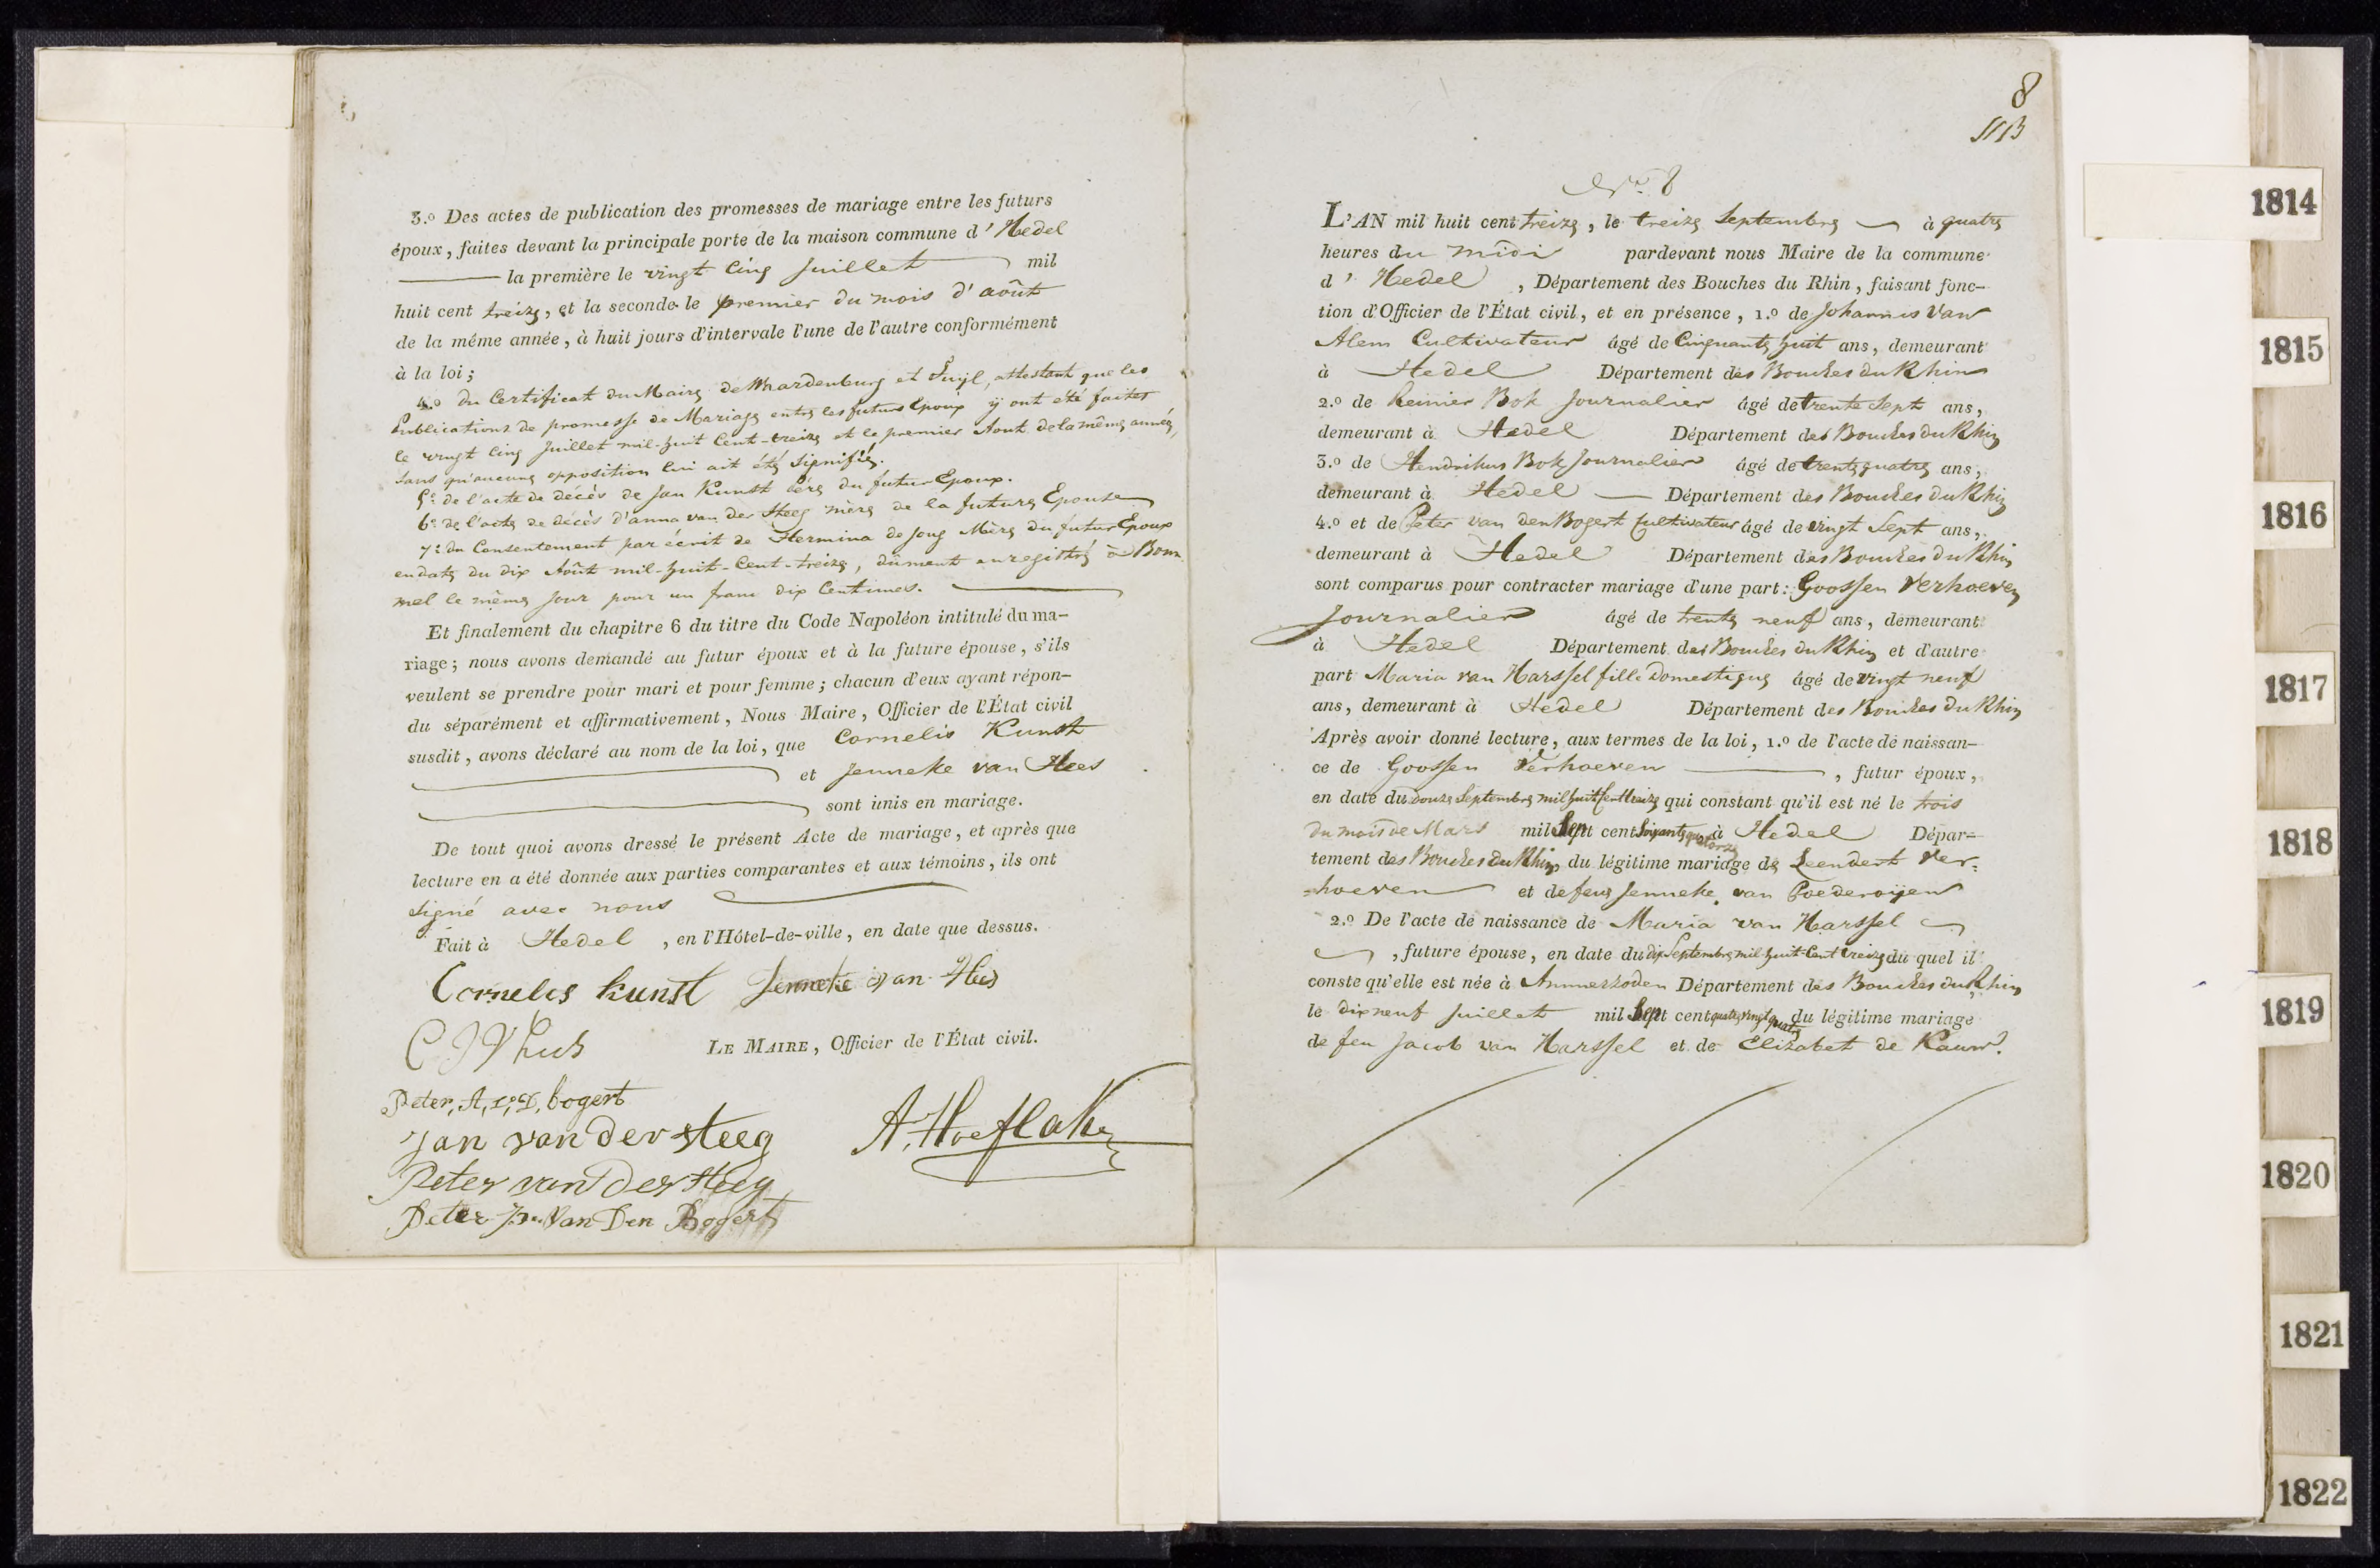 3.º Des actes de publication des promesses de mariage entre les futurs
époux, faites devant la principale porte de la maison commune d'Hedel
la première le vingt cinq Juillet mil
huit cent treize, et la seconde le premier du mois d'août
de la même année, à huit jours d'intervale l'une de l'autre conformément
à la loi;
4.º du Certificat du Maire de Waardenburg et Tuijl, attestant que les
Publications de promesse de Mariage entre les futurs Epoux ÿ ont été faites
le vingt cinq Juillet mil-huit Cent-treize et le premier Aout de la même année,
sans qu'aucune opposition lui ait été signifié.
5º de l'acte de décès de Jan Kunst Père du futur Epoux.
6º de l'acte de décès d'anna van der Steeg mère de la future Epouse
7º du Consentement par écrit de Hermina de Jong Mère du futur Epoux
en date du dix Août mil-huit-Cent-treize, dûment enregistré à Bom
mel le même jour pour un franc dix Centimes.
Et finalement du chapitre 6 du titre du Code Napoléon intitulé du ma-
riage; nous avons demandé au futur époux et à la future épouse, s'ils
veulent se prendre pour mari et pour femme; chacun d'eux ayant répon-
du séparément et affirmativement, Nous Maire, Officier de l'État civil
susdit, avons déclaré au nom de la loi, que Cornelis Kunst
et Jenneke van Hees
sont unis en mariage.
De tout quoi avons dressé le présent Acte de mariage, et après que
lecture en a été donnée aux parties comparantes et aux témoins, ils ont
signé avec nous
Fait à Hedel, en l'Hôtel-de-ville, en date que dessus.
Cornelis kunst Jenneke van Hees
LE MAIRE, Officier de l'État civil.
Peter, A, v, D, bogert
Jan van der steeg
A. Hoeflake
Peter van Der steeg
Peter Jn. Van Den Bogert
8
Nº 8
L'AN mil huit cent treize, le treize Septembre à quatre
heures du midi pardevant nous Maire de la commune
d'Hedel, Département des Bouches du Rhin, faisant fonc-
tion d'Officier de l'État civil, et en présence, 1.º de Johannis van
Alem Cultivateur âgé de Cinquante huit ans, demeurant
à Hedel Département des Bouches du Rhin
2.º de Reinier Bok Journalier âgé de trente Sept ans,
demeurant à Hedel Département des Bouches du Rhin
3.º de Hendrikus Bok Journalier âgé de trente quatre ans,
demeurant à Hedel Département des Bouches du Rhin
4.º et de Peter van den Bogert Cultivateur âgé de vingt Sept ans,
demeurant à Hedel Département des Bouches du Rhin
sont comparus pour contracter mariage d'une part: Goossen Verhoeven
Journalier âgé de trente neuf ans, demeurant
à Hedel Département des Bouches du Rhin et d'autre
part Maria van Harssel fille Domestique âgé de vingt neuf
ans, demeurant à Hedel Département des Bouches du Rhin
Après avoir donné lecture, aux termes de la loi, 1.º de l'acte de naissan-
ce de Goossen Verhoeven, futur époux,
en date du douze Septembre mil huit Cent treize qui constant qu'il est né le trois
du mois de Mars mil Sept cent Soixante quatorze à Hedel Dépar-
tement des Bouches du Rhin du légitime mariage de Leendert Ver-
hoeven et de feue Jenneke van Poederoijen
2.º De l'acte de naissance de Maria van Harssel
, future épouse, en date du dix Septembre mil-huit-Cent treize du quel il
conste qu'elle est née à Ammerzoden Département des Bouches du Rhin
le dix neuf Juillet mil Sept cent quatre vingt quatre du légitime mariage
de feu Jacob van Harssel et de Elizabet de Kauw.
1814
1815
1816
1817
1818
1819
1820
1821
1822